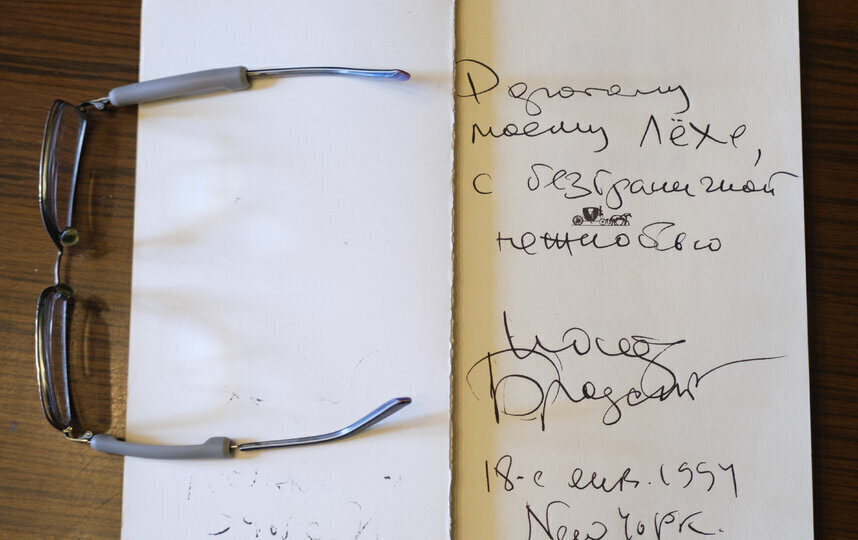 Дорогому
моему Лёхе,
с безграничной
нежностью
Иосиф
Бродский
18-е янв. 1994
New York.